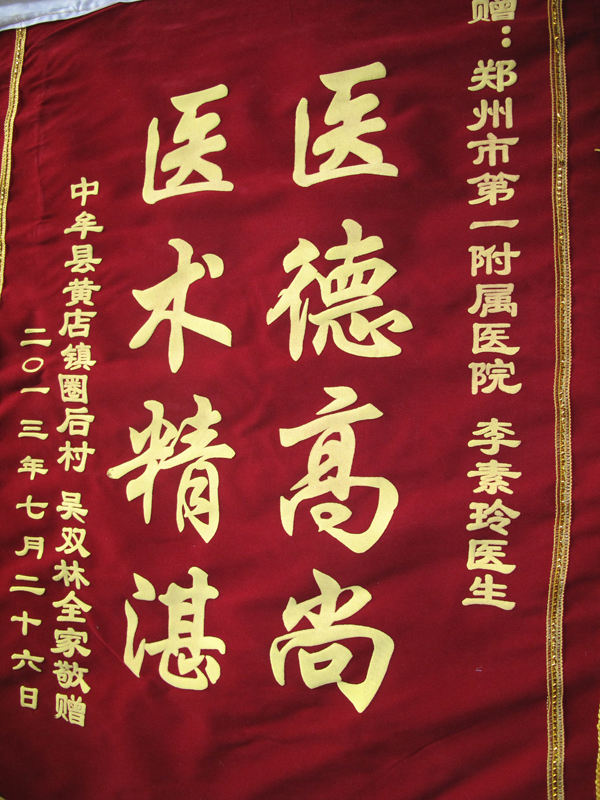 赠：郑州市第一附属医院 李素玲医生
医德高尚
医术精湛
中牟县黄店镇圈后村 吴双林全家敬赠
二〇一三年七月二十六日